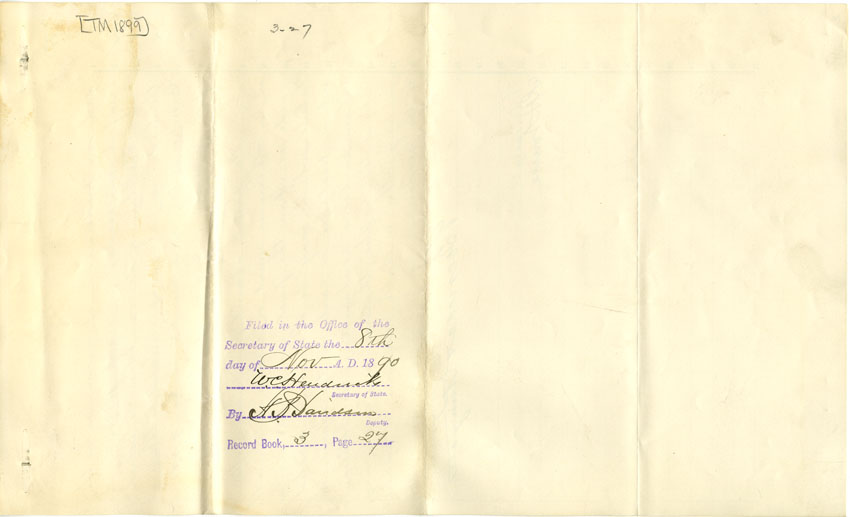 [TM1899)
3-27
Filed in the Office of the
Secretary of State the 8th
day of Nov A. D. 1890
W.C. Hendricks
Secretary of State.
By
Deputy.
Record Book, 3, Page 27